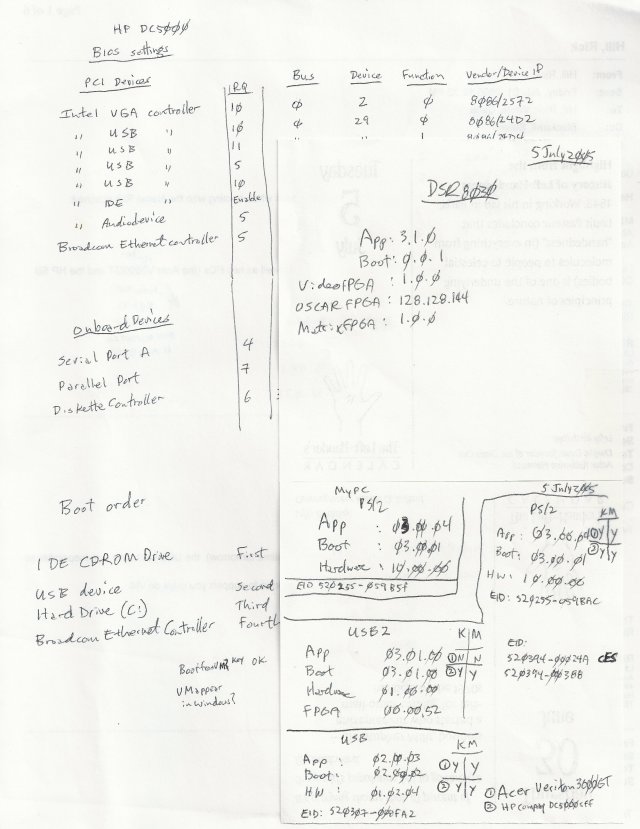 HP DC5000
BIOS settings
PCI Devices
IRQ Bus Device Function Vendor/Device ID
Intel VGA controller 10 0 2 0 8086/2572
" USB " 10 0 29 0 8086/24D2
" USB " 11
" USB " 5
" USB " 10
" IDE " Enable
" Audiodevice 5
Broadcom Ethernet controller 5
Onboard Devices
Serial Port A 4
Parallel Port 7
Diskette Controller 6
Boot order
IDE CDROM Drive First
USB device Second
Hard Drive (C:) Third
Broadcom Ethernet Controller Fourth
Boot from VM? key OK
VM appear
in windows?
5 July 2005
DSR 8030
App: 3.1.0
Boot: 0.0.1
Video FPGA : 1.0.0
OSCAR FPGA : 128.128.144
Matrix FPGA : 1.0.0
My PC
PS/2
App : 03.00.04
Boot : 03.00.01
Hardware : 10.00.00
EID 520255-059B5F
5 July 2005
PS/2
K M
App: 03.00.04 ① Y Y
Boot: 03.00.01 ② Y Y
HW: 10.00.00
EID: 520255-059BAC
USB2
K M
App 03.01.00 ① N N
Boot 03.01.00 ② Y Y
Hardware 01.00.00
FPGA 00.00.52
EID:
520394-00024A CES
520394-0003BB
USB
K M
App: 02.00.03 ① Y Y
Boot: 02.00.02 ② Y Y
HW: 01.02.04
EID: 520307-000FA2
① Acer Veriton 3600GT
② HP Compaq DC5000